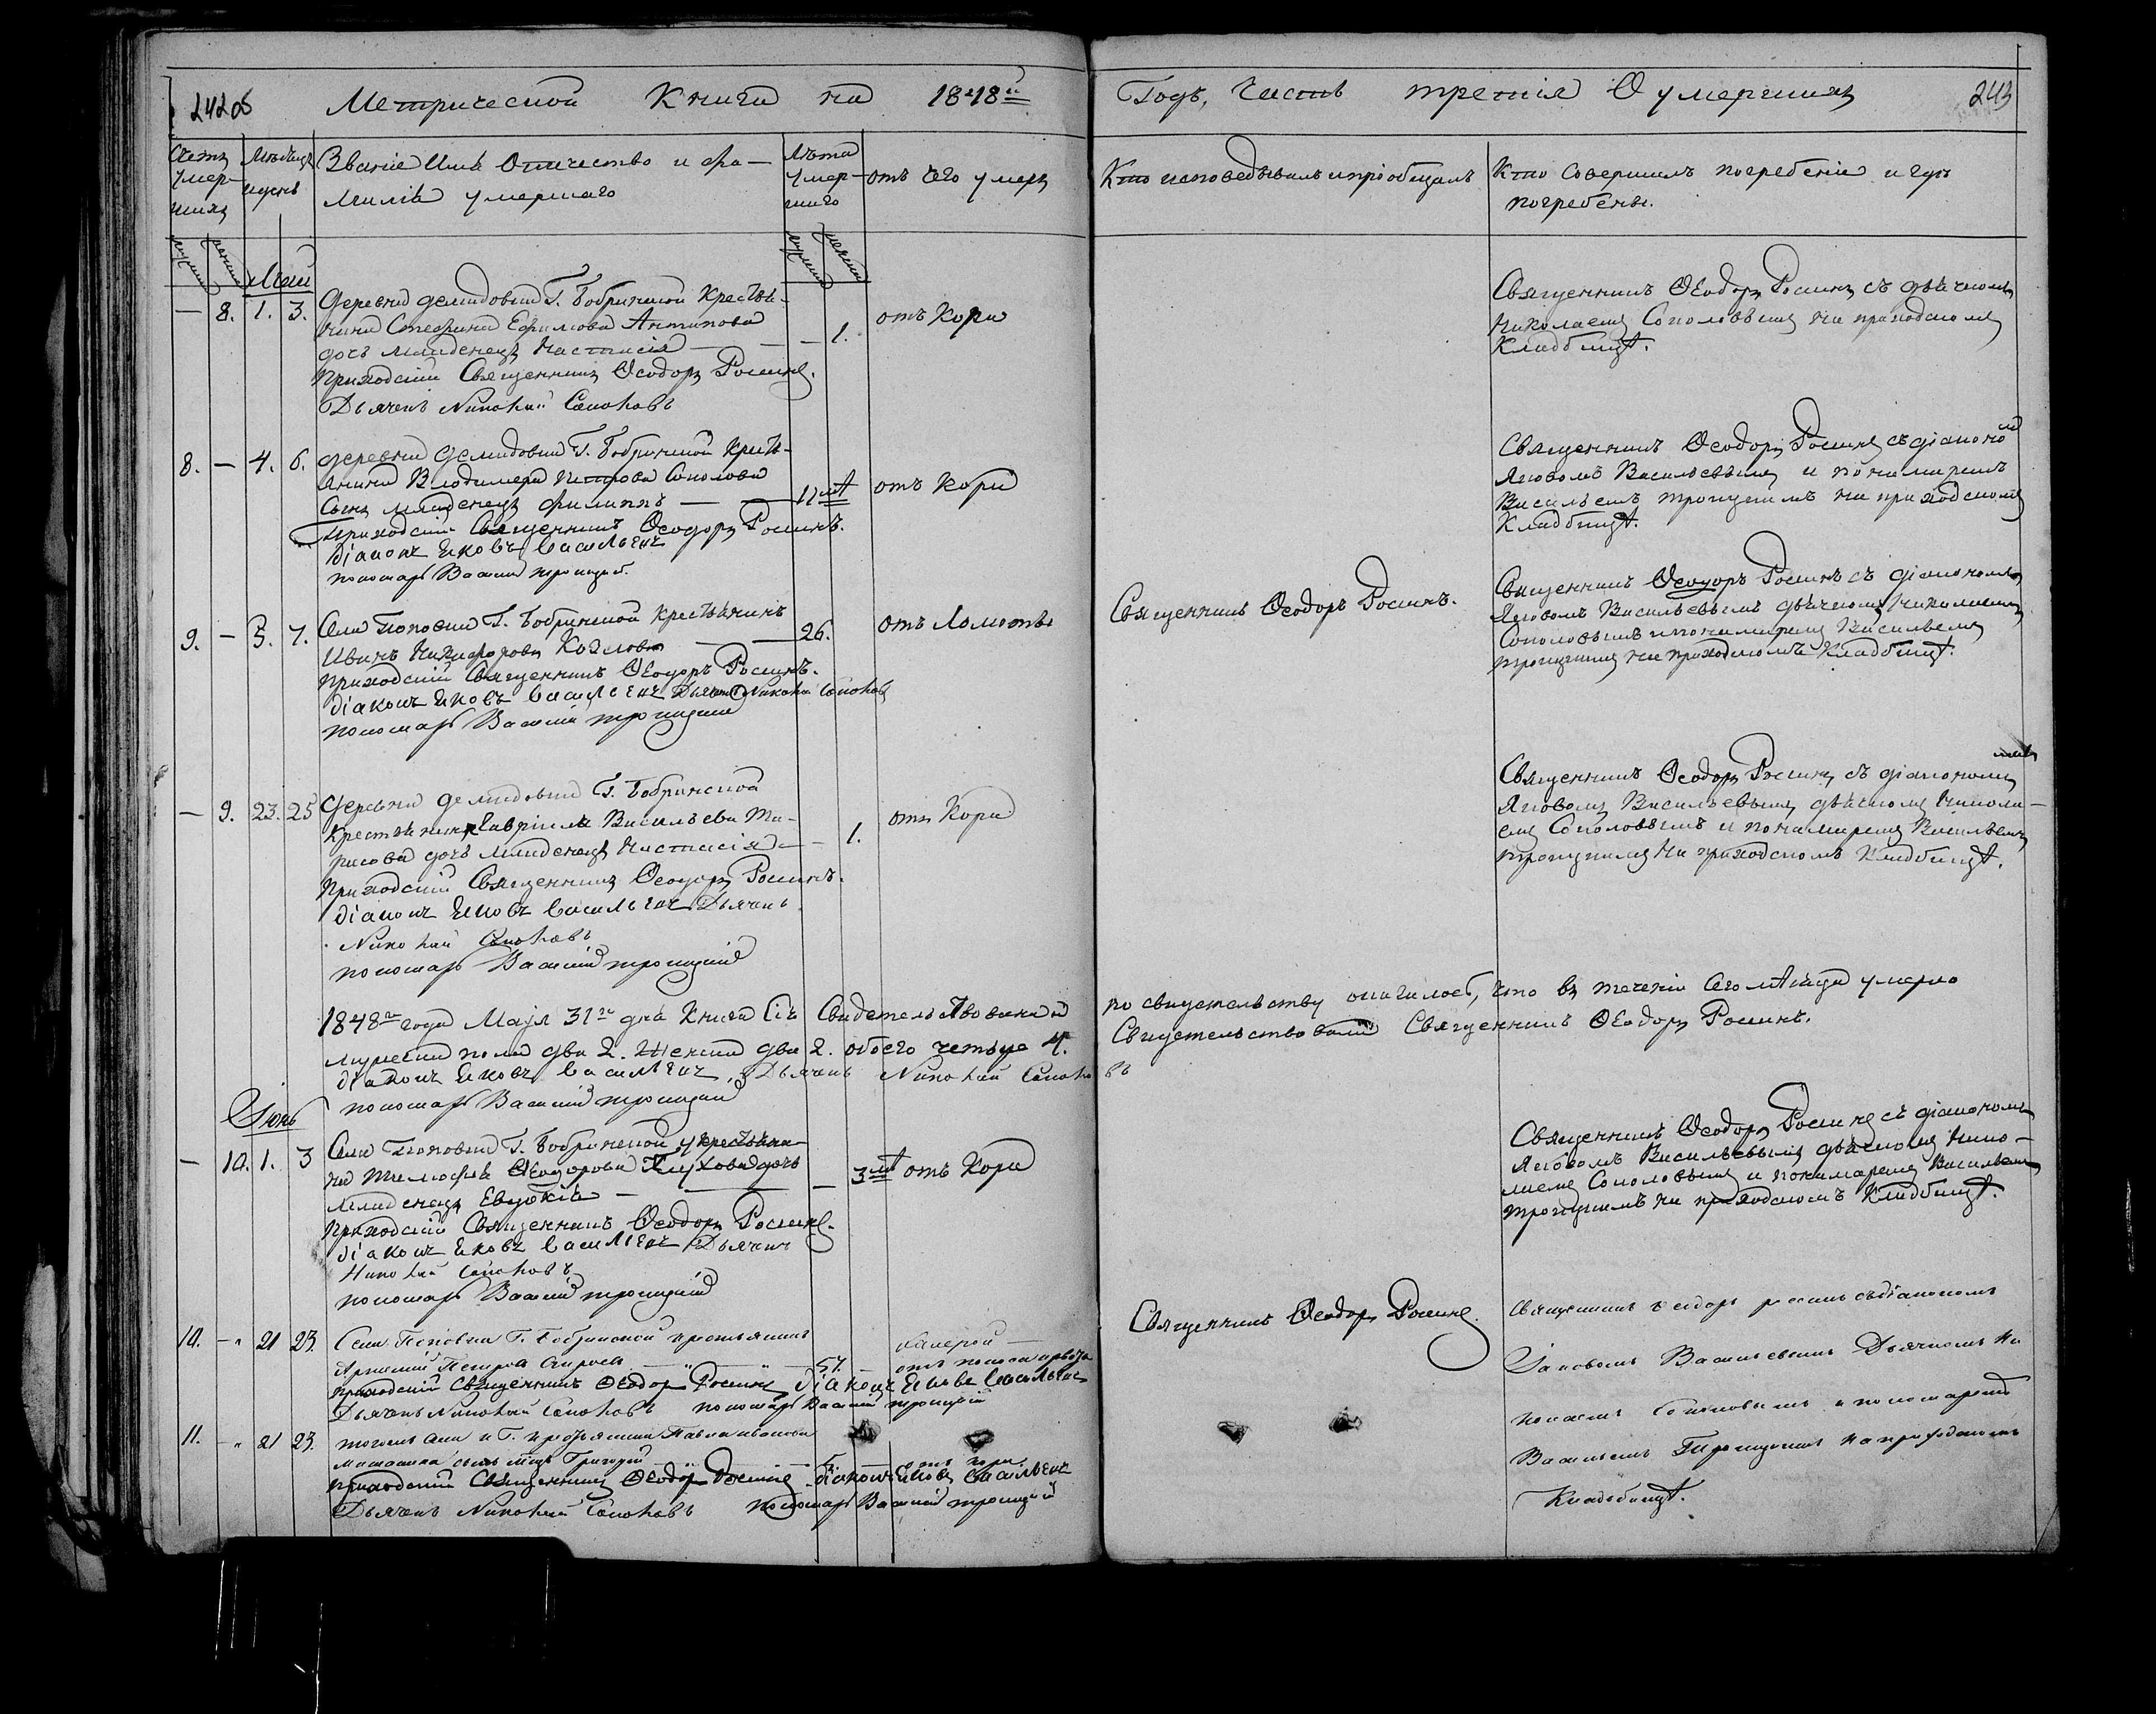 242об Метрической Книги на 1848й
Годъ, Часть третія О умершихъ 243
Счетъ умершихъ
Мѣсяцъ и день
Званіе Имя Отчество и фамилія умершаго
Лѣта умершаго
отъ чего умеръ
Кто исповедывалъ и пріобщалъ
Кто Совершилъ погребеніе и гдѣ
погребены.
Май
— 8. 1. 3. Деревни Демидовки Г. Бобринской Крестья-
нина Стефана Ефимова Антипова
дочь младенецъ Настасія — — 1. отъ Кори
Приходскій Священникъ Ѳеодоръ Росинъ.
Дьячекъ Николай Соколовъ
Священникъ Ѳеодоръ Росинъ съ дьячкомъ
Николаемъ Соколовымъ на приходскомъ
Кладбищѣ.
8. — 4. 6. деревни Демидовки Г. Бобринской Кресть-
янина Владимера Петрова Соколова
Сынъ младенецъ Филиппъ — отъ Кори
Приходскій Священникъ Ѳеодоръ Росинъ.
Діаконъ Яковъ Васильевъ
пономарь Василій Троицкій
Священникъ Ѳеодоръ Росинъ съ діакономъ
Яковомъ Васильевымъ и пономаремъ
Васильемъ Троицкимъ на приходскомъ
Кладбищѣ.
9. — 5. 7. Села Поповки Г. Бобринской крестьянинъ
Иванъ Никифоровъ Козловъ — 26. отъ Ломоты
Приходскій Священникъ Ѳеодоръ Росинъ.
Діаконъ Яковъ Васильевъ Дьячекъ Николай Соколовъ
пономарь Василій Троицкій
Священникъ Ѳеодоръ Росинъ.
Священникъ Ѳеодоръ Росинъ съ діакономъ
Яковомъ Васильевымъ дьячкомъ Николаемъ
Соколовымъ и пономаремъ Васильемъ
Троицкимъ на приходскомъ Кладбищѣ.
— 9. 23. 25 Деревни Демидовки Г. Бобринской
Крестьянина Гавріила Васильева
дочь младенецъ Настасія — 1. отъ Кори
Приходскій Священникъ Ѳеодоръ Росинъ.
Діаконъ Яковъ Васильевъ Дьячекъ
Николай Соколовъ
пономарь Василій Троицкій
Священникъ Ѳеодоръ Росинъ съ діакономъ
Яковомъ Васильевымъ дьячкомъ Никола-
емъ Соколовымъ и пономаремъ Васильемъ
Троицкимъ на приходскомъ Кладбищѣ.
1848го года Маія 31го дня Книга Сія Свидетельствована и по свидетельству оказалось, что въ теченіи Сего мѣсяца умерло
мужеска пола два 2. Женска два 2. обоего четыре 4. Свидетельствовали Священникъ Ѳеодоръ Росинъ.
Діаконъ Яковъ Васильевъ, Дьячекъ Николай Соколовъ
пономарь Василій Троицкій
Іюнь
— 10. 1. 3 Села Поповки Г. Бобринской у крестьяни-
на Тимофея Ѳеодорова дочь
младенецъ Евдокія — — отъ Кори
Приходскій Священникъ Ѳеодоръ Росинъ.
Діаконъ Яковъ Васильевъ Дьячекъ
Николай Соколовъ
пономарь Василій Троицкій
Священникъ Ѳеодоръ Росинъ съ діакономъ
Яковомъ Васильевымъ дьячкомъ Нико-
лаемъ Соколовымъ и пономаремъ Васильемъ
Троицкимъ на приходскомъ Кладбищѣ.
10. — 21 23. Села Поповки Г. Бобринской крестьянинъ
Петровъ — 57. —
Приходскій Священникъ Ѳеодоръ Росинъ Діаконъ Яковъ Васильевъ
Дьячекъ Николай Соколовъ пономарь Василій Троицкій
Священникъ Ѳеодоръ Росинъ.
Священникъ Ѳеодоръ Росинъ съ діакономъ
Іаковомъ Васильевымъ Дьячкомъ Ни
колаемъ Соколовымъ и пономаремъ
Васильемъ Троицкимъ на приходскомъ
Кладбищѣ.
11. — 21 23. тогожъ села и Г. крестьянина Павла Иванова
сынъ Григорій — отъ кори
Приходскій Священникъ Ѳеодоръ Росинъ Діаконъ Яковъ Васильевъ
Дьячекъ Николай Соколовъ пономарь Василій Троицкій